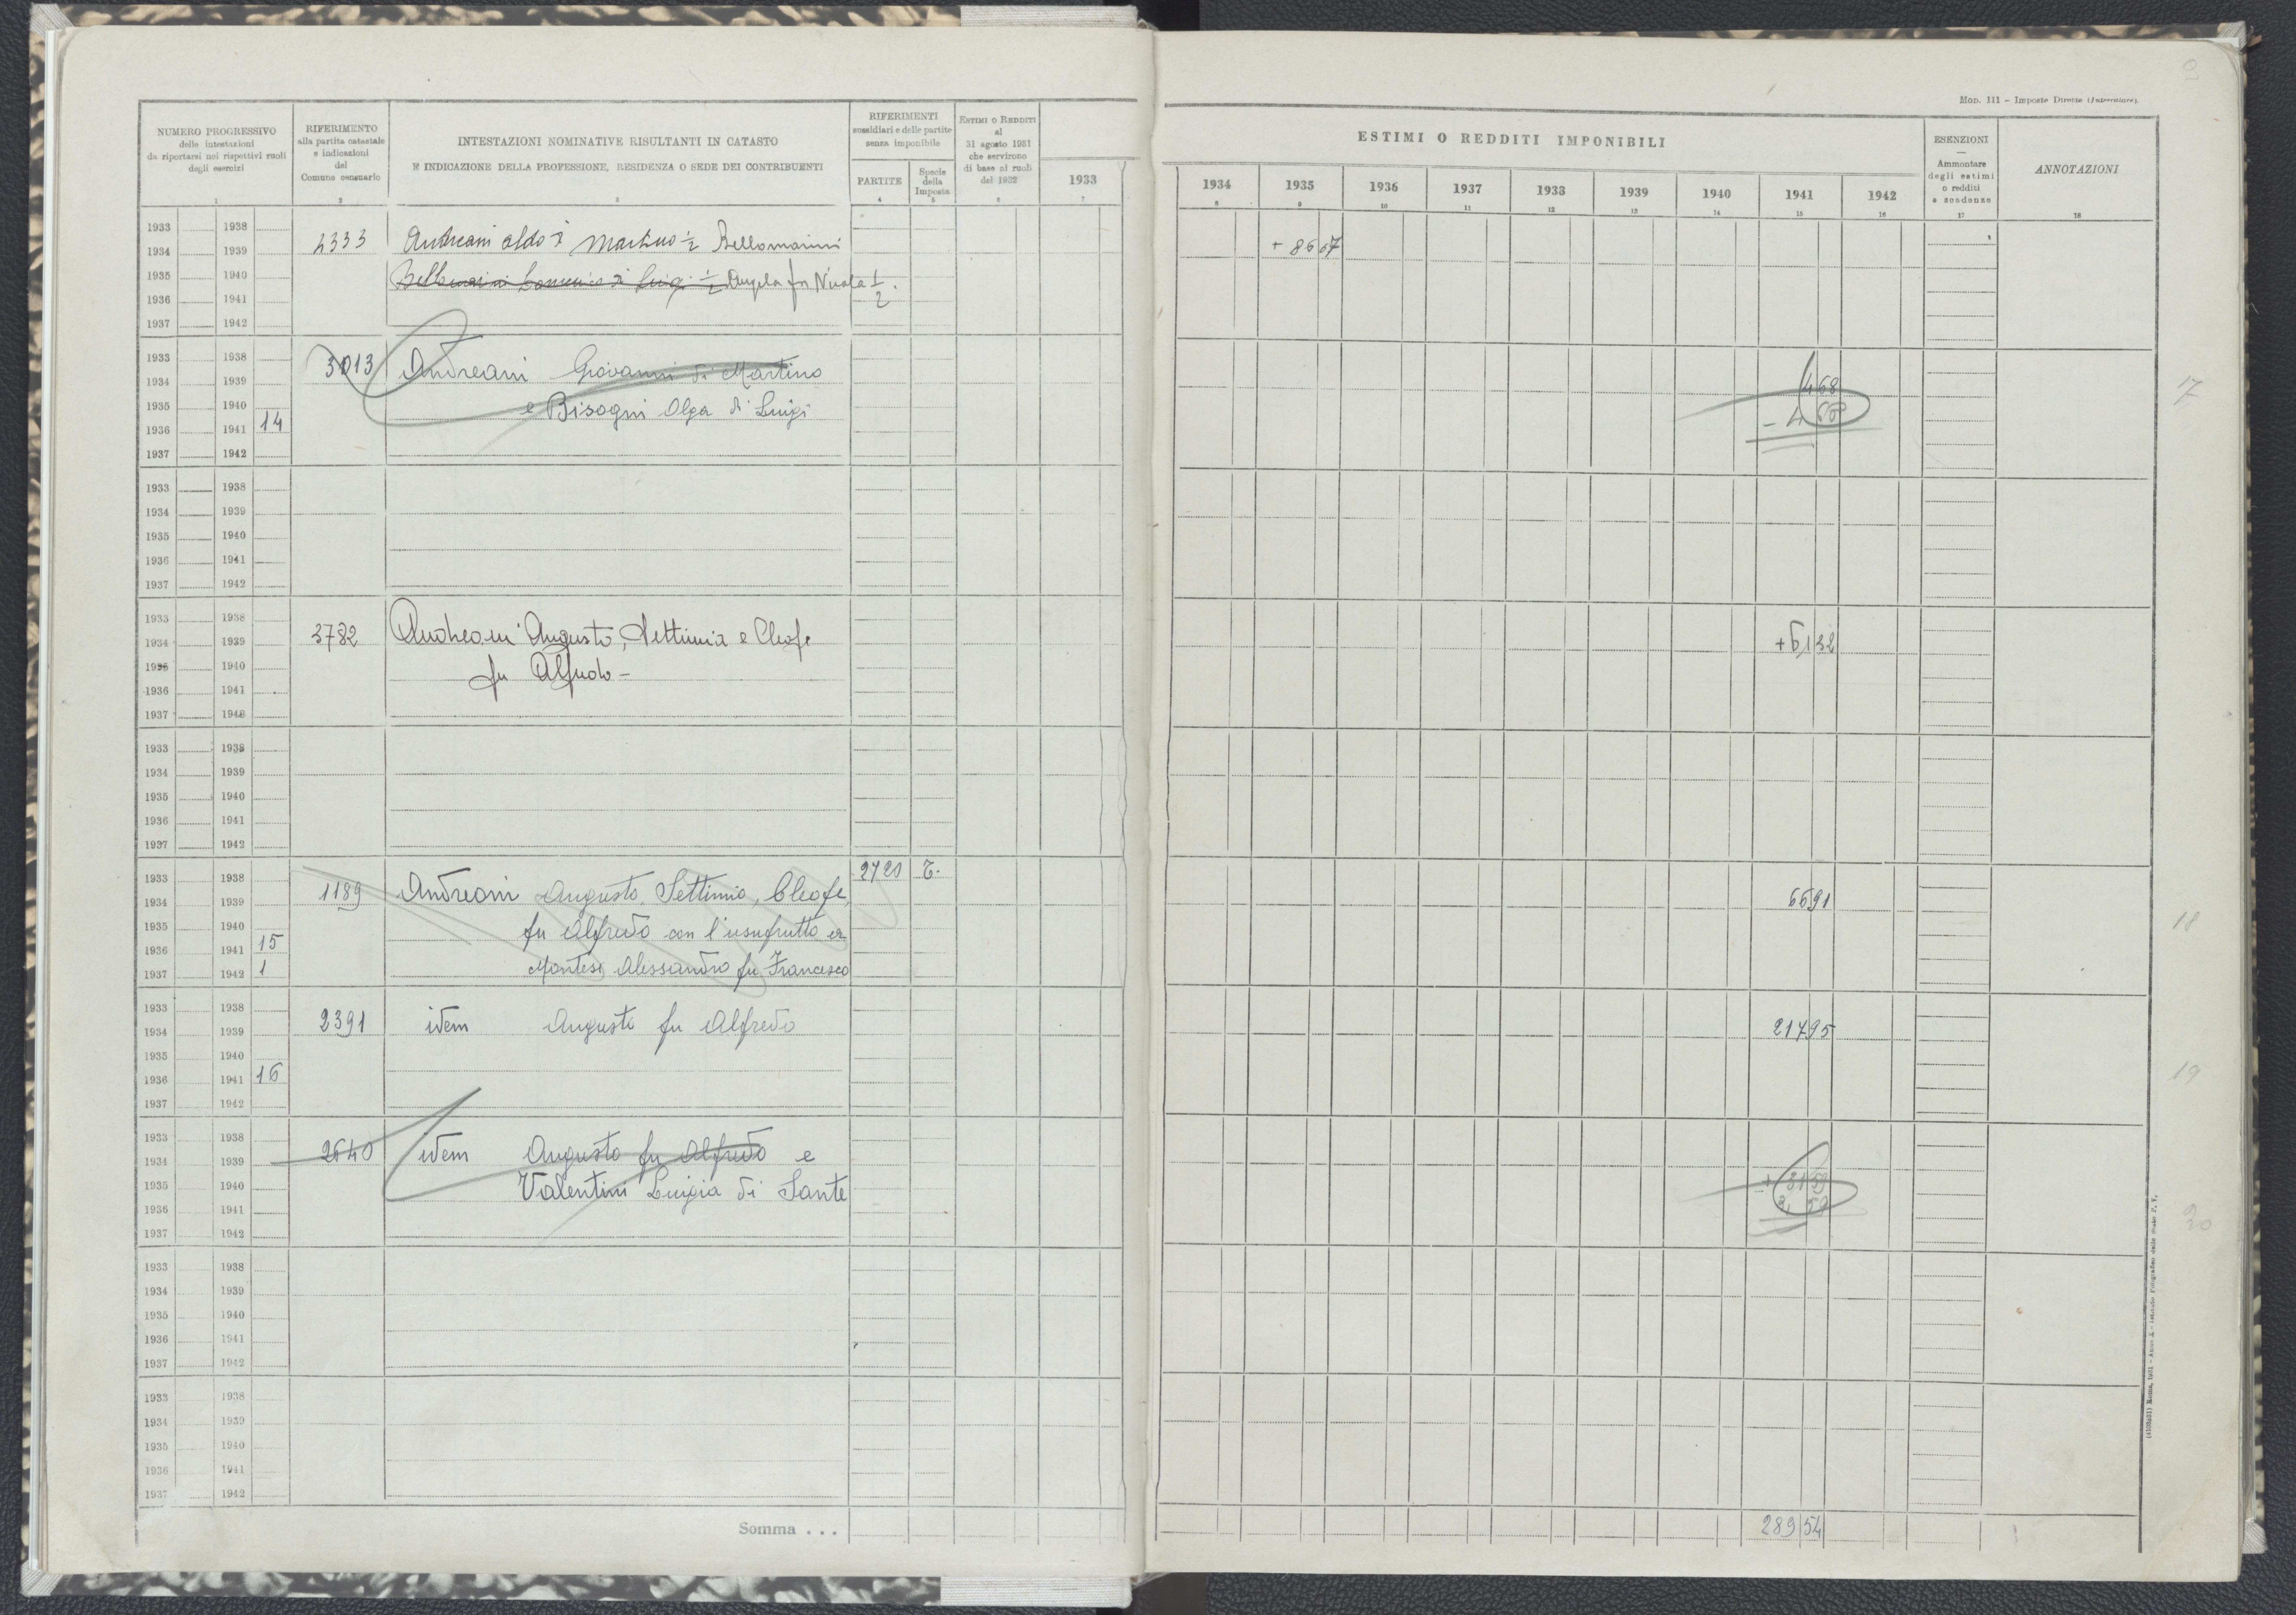 2
Mod. 111 – Imposte Dirette (Intercalare).
NUMERO PROGRESSIVO
delle intestazioni
da riportarsi nei rispettivi ruoli
degli esercizi
RIFERIMENTO
alla partita catastale
e indicazioni
del
Comune censuario
INTESTAZIONI NOMINATIVE RISULTANTI IN CATASTO
E INDICAZIONE DELLA PROFESSIONE, RESIDENZA O SEDE DEI CONTRIBUENTI
RIFERIMENTI
sussidiari e delle partite
senza imponibile
PARTITE
Specie
della
Imposta
ESTIMI O REDDITI
al
31 agosto 1931
che servirono
di base ai ruoli
del 1932
ESTIMI O REDDITI IMPONIBILI
1933 1934 1935 1936 1937 1938 1939 1940 1941 1942
ESENZIONI
—
Ammontare
degli estimi
o redditi
e scadenze
ANNOTAZIONI
1 2 3 4 5 6 7 8 9 10 11 12 13 14 15 16 17 18
1933 1938
1934 1939
1935 1940
1936 1941
1937 1942
Andreani Aldo di Martino 1/2 Bellomarini
Angela fu Nicola 1/2.
+ 86 67
1933 1938
1934 1939
1935 1940
1936 1941 14
1937 1942
3013 Andreani Giovanni di Martino
e Bisogni Olga di Luigi
4 68
- 4 68
17
1933 1938
1934 1939
1935 1940
1936 1941
1937 1942
1933 1938
1934 1939
1935 1940
1936 1941
1937 1942
3782 Andreani Augusto, Settimia e Cleofe
fu Alfredo -
+ 5,1 32
1933 1938
1934 1939
1935 1940
1936 1941
1937 1942
1933 1938
1934 1939
1935 1940
1936 1941 15
1937 1942 1
1189 Andreani Augusto, Settimio, Cleofe, 2720 T.
fu Alfredo con l'usufrutto a
Montesi Alessandro fu Francesco
66 91
18
1933 1938
1934 1939
1935 1940
1936 1941 16
1937 1942
2391 idem Augusto fu Alfredo
217 95
19
1933 1938
1934 1939
1935 1940
1936 1941
1937 1942
2640 idem Augusto fu Alfredo e
Valentini Luigia di Sante
20
1933 1938
1934 1939
1935 1940
1936 1941
1937 1942
1933 1938
1934 1939
1935 1940
1936 1941
1937 1942
Somma . . .
289 54